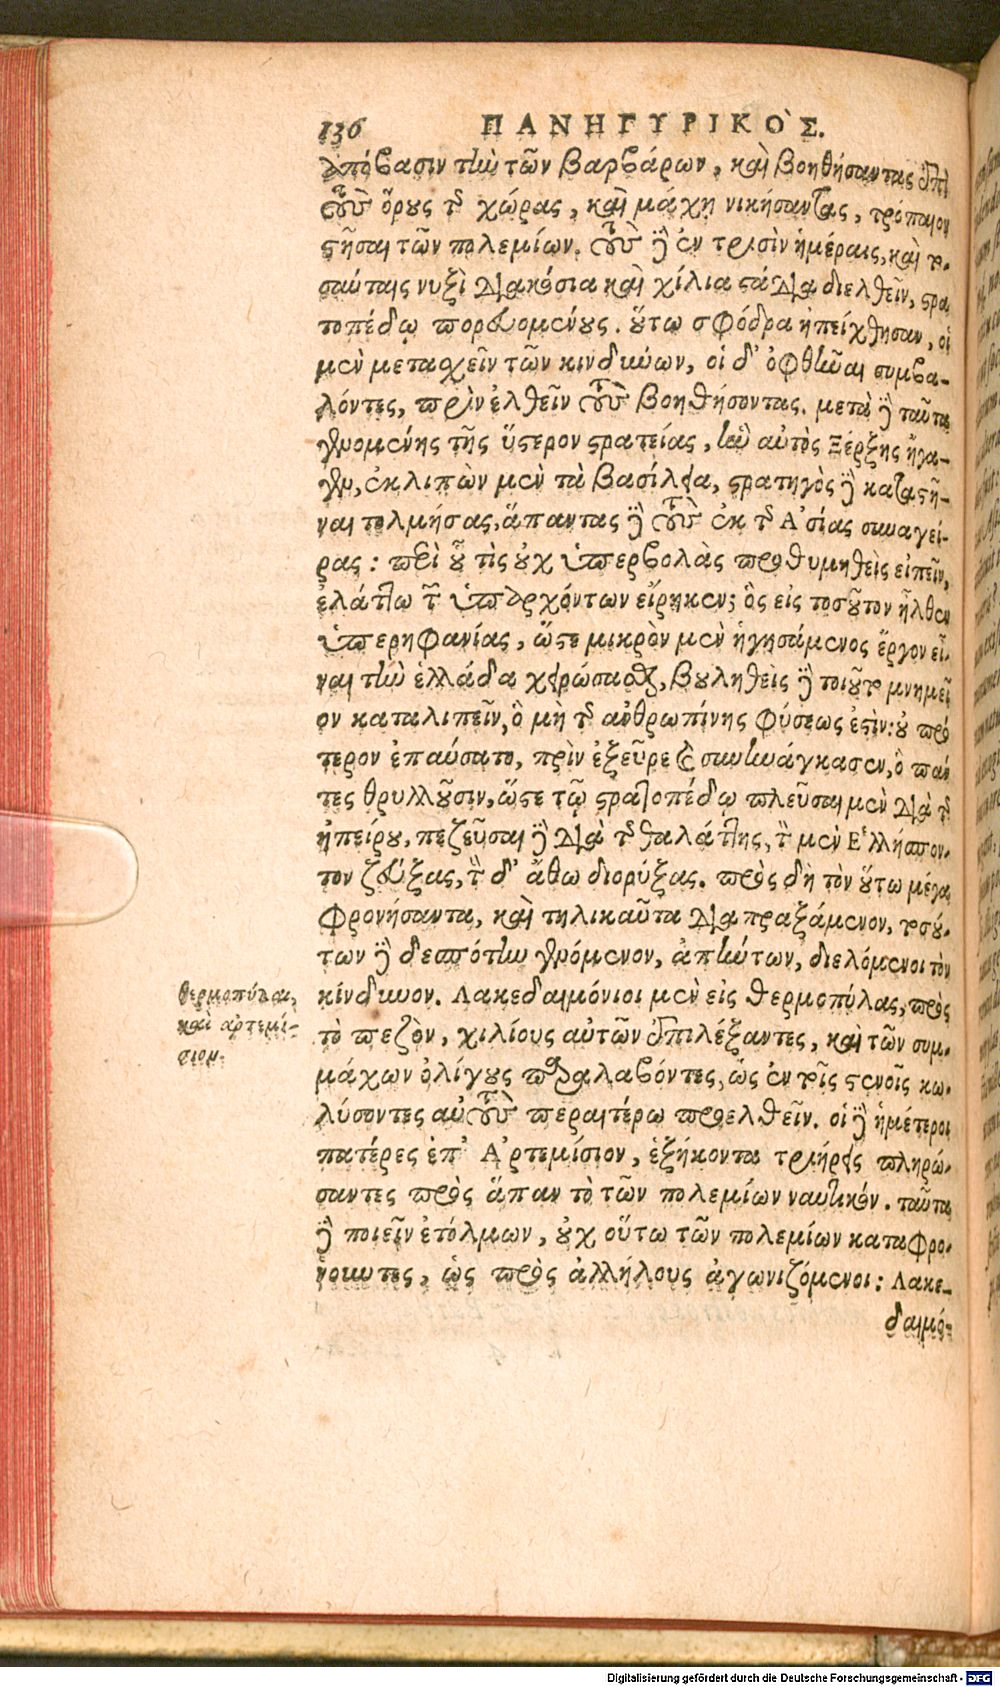 136 ΠΑΝΗΓΥΡΙΚΟΣ.
ἀπόβασιν τὴν τῶν βαρβάρων, καὶ βοηθήσαντας ἐπὶ
τοὺς ὅρους τῆς χώρας, καὶ μάχῃ νικήσαντας, τρόπαιον
στῆσαι τῶν πολεμίων. τοὺς δὲ ἐν τρισὶν ἡμέραις, καὶ το-
σαύταις νυξὶ διακόσια καὶ χίλια στάδια διελθεῖν, στρα
τοπέδῳ πορευομένους. οὕτω σφόδρα ἠπείχθησαν, οἱ
μὲν μετασχεῖν τῶν κινδύνων, οἱ δ' ὀφθῆναι συμβα-
λόντες, πρὶν ἐλθεῖν τοὺς βοηθήσοντας. μετὰ δὲ ταῦτα
γενομένης τῆς ὕστερον στρατείας, ἣν αὐτὸς Ξέρξης ἤγα-
γεν, ἐκλιπὼν μὲν τὰ βασίλεια, στρατηγὸς δὲ καταστῆ-
ναι τολμήσας, ἅπαντας δὲ τοὺς ἐκ τῆς Ἀσίας συναγεί-
ρας: περὶ οὗ τὶς οὐχ ὑπερβολὰς προθυμηθεὶς εἰπεῖν,
ἐλάττω τῶν ὑπαρχόντων εἴρηκεν; ὃς εἰς τοσοῦτον ἦλθεν
ὑπερηφανίας, ὥστε μικρὸν μὲν ἡγησάμενος ἔργον εἶ-
ναι τὴν ἑλλάδα χειρώσασθαι, βουληθεὶς δὲ τοιοῦτο μνημεῖ
ον καταλιπεῖν, ὃ μὴ τῆς ἀνθρωπίνης φύσεως ἐστὶν: οὐ πρό
τερον ἐπαύσατο, πρὶν ἐξεῦρε καὶ συνηνάγκασεν, ὃ πάν
τες θρυλλοῦσιν, ὥστε τῷ στρατοπέδῳ πλεῦσαι μὲν διὰ τῆς
ἠπείρου, πεζεῦσαι δὲ διὰ τῆς θαλάττης, τὸν μὲν Ἑλλήσπον-
τον ζεύξας, τὸν δ' ἄθω διορύξας. πρὸς δὴ τὸν οὕτω μέγα
φρονήσαντα, καὶ τηλικαῦτα διαπραξάμενον, τοσού-
των δὲ δεσπότην γενόμενον, ἀπήντων, διελόμενοι τὸν
κίνδυνον. Λακεδαιμόνιοι μὲν εἰς θερμοπύλας, πρὸς
τὸ πεζὸν, χιλίους αὐτῶν ἐπιλέξαντες, καὶ τῶν συμ-
μάχων ὀλίγους παραλαβόντες, ὡς ἐν τοῖς στενοῖς κω-
λύσοντες αὐτοὺς περαιτέρω προελθεῖν. οἱ δὲ ἡμέτεροι
πατέρες ἐπ' Ἀρτεμίσιον, ἑξήκοντα τριήρεις πληρώ-
σαντες πρὸς ἅπαν τὸ τῶν πολεμίων ναυτικόν. ταῦτα
δὲ ποιεῖν ἐτόλμων, οὐχ οὕτω τῶν πολεμίων καταφρο-
νοῦντες, ὡς πρὸς ἀλλήλους ἀγωνιζόμενοι: Λακε-
δαιμό-
θερμοπύλαι,
καὶ ἀρτεμί-
σιον.
Digitalisierung gefördert durch die Deutsche Forschungsgemeinschaft - DFG